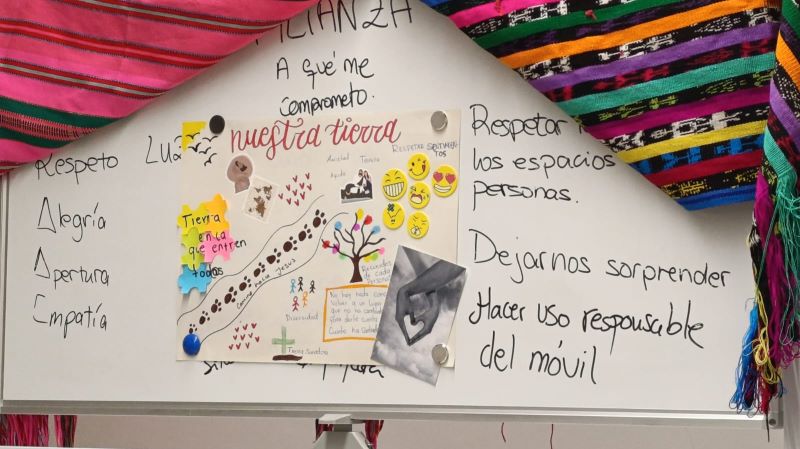 A qué me
comprometo.
Respeto
Alegría
Apertura
Empatía
nuestra tierra
Amistad
Ayuda
Tierra
en la
que entren
todos
Camino hacia Jesús
Diversidad
Recuerdos
de cada
Persona
No hay nada como
volver a un lugar
que no ha cambiado
Para darte cuenta
Cuanto has cambiado
Respetar
los espacios
personas.
Dejarnos sorprender
Hacer uso responsable
del móvil